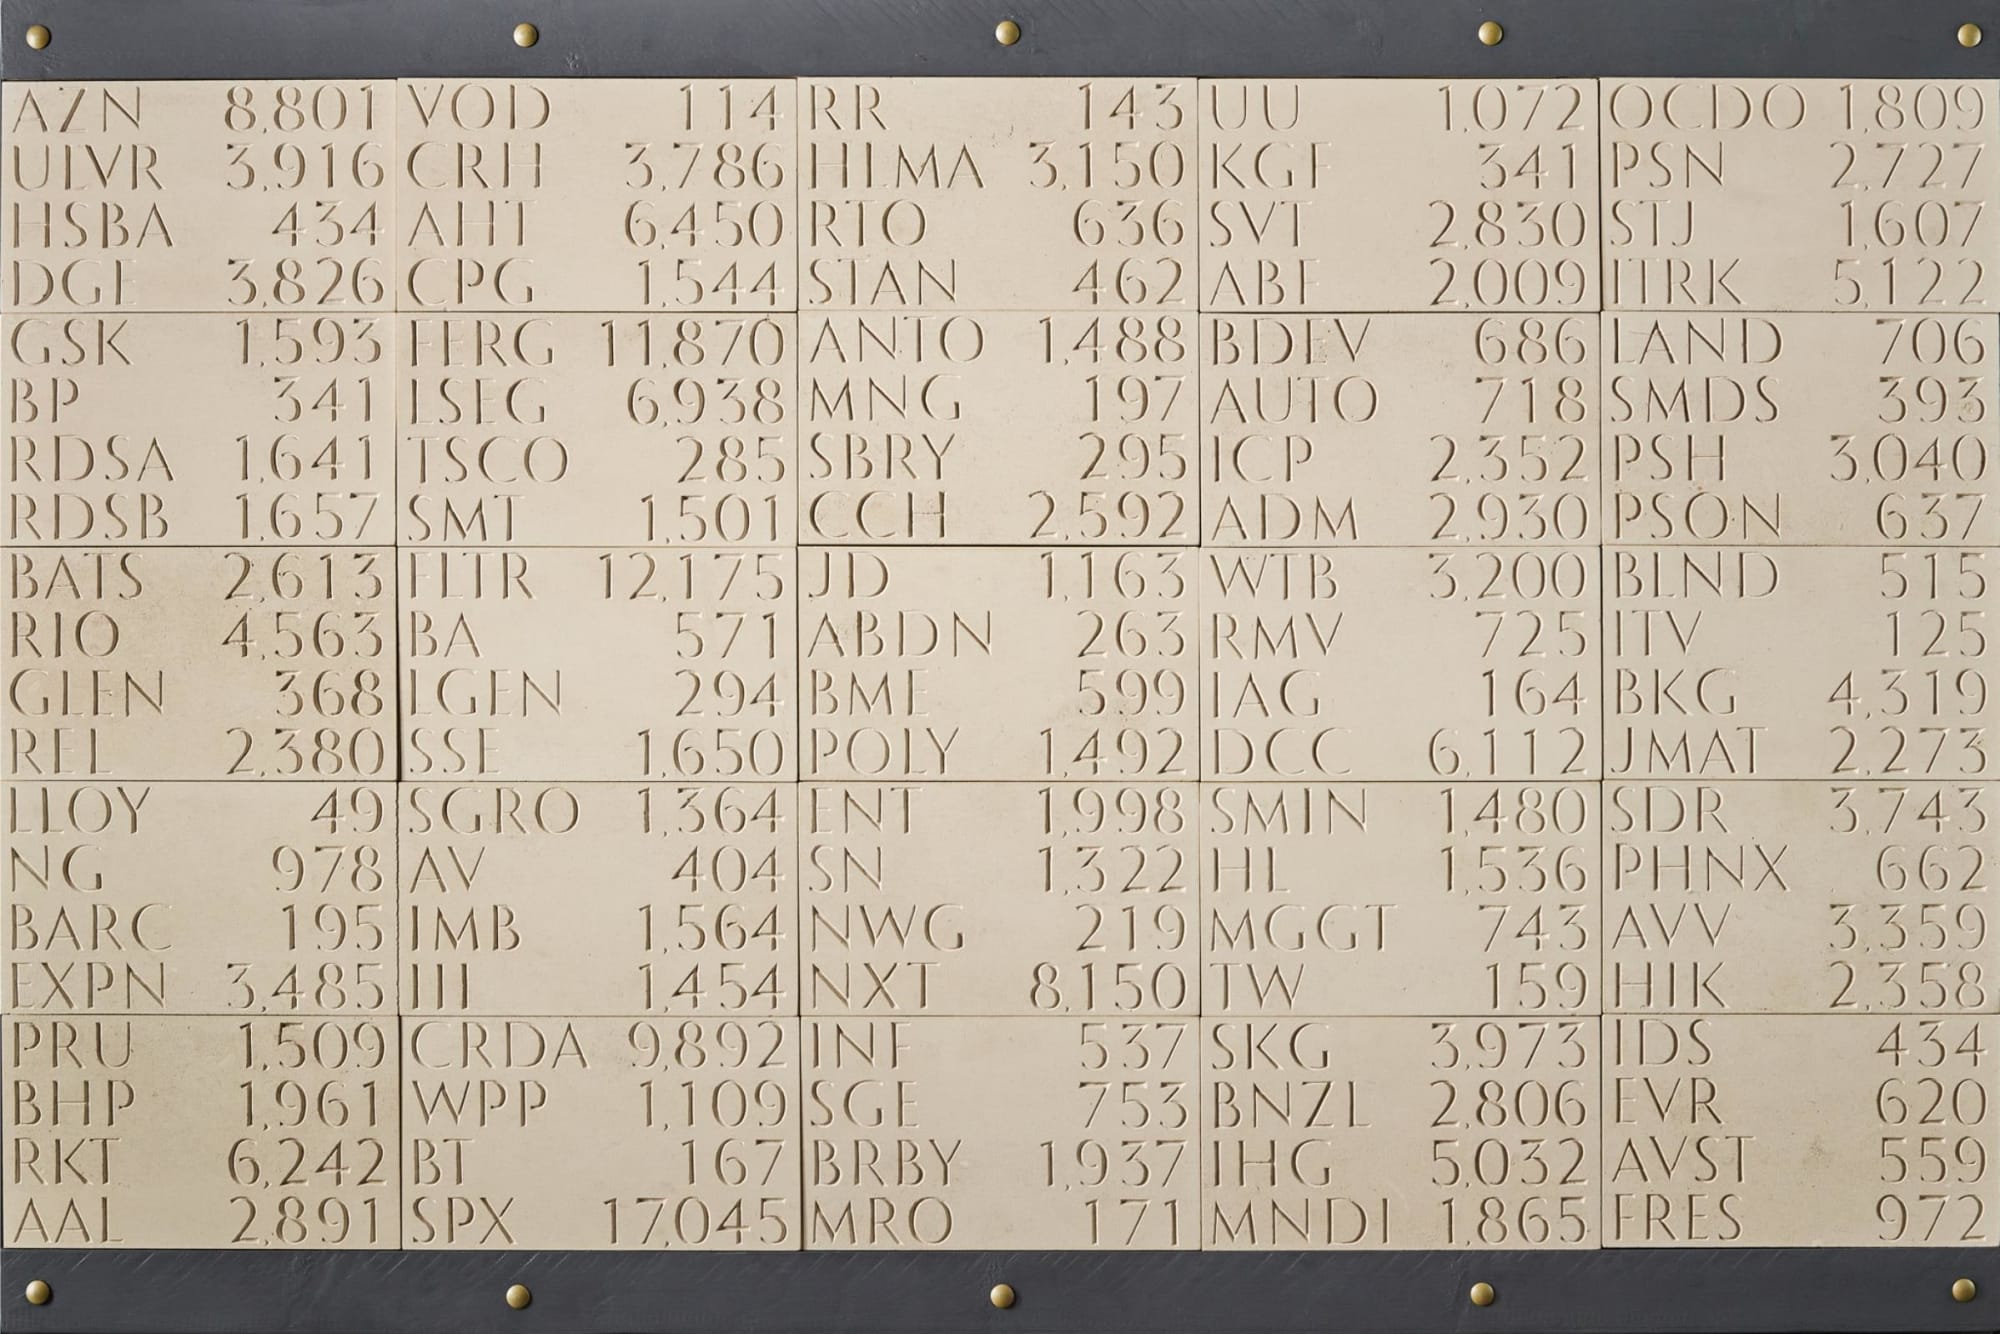 AZN 8,801
ULVR 3,916
HSBA 434
DGE 3,826
GSK 1,593
BP 341
RDSA 1,641
RDSB 1,657
BATS 2,613
RIO 4,563
GLEN 368
REL 2,380
LLOY 49
NG 978
BARC 195
EXPN 3,485
PRU 1,509
BHP 1,961
RKT 6,242
AAL 2,891
VOD 114
CRH 3,786
AHT 6,450
CPG 1,544
FERG 11,870
LSEG 6,938
TSCO 285
SMT 1,501
FLTR 12,175
BA 571
LGEN 294
SSE 1,650
SGRO 1,364
AV 404
IMB 1,564
III 1,454
CRDA 9,892
WPP 1,109
BT 167
SPX 17,045
RR 143
HLMA 3,150
RTO 636
STAN 462
ANTO 1,488
MNG 197
SBRY 295
CCH 2,592
JD 1,163
ABDN 263
BME 599
POLY 1,492
ENT 1,998
SN 1,322
NWG 219
NXT 8,150
INF 537
SGE 753
BRBY 1,937
MRO 171
UU 1,072
KGF 341
SVT 2,830
ABF 2,009
BDEV 686
AUTO 718
ICP 2,352
ADM 2,930
WTB 3,200
RMV 725
IAG 164
DCC 6,112
SMIN 1,480
HL 1,536
MGGT 743
TW 159
SKG 3,973
BNZL 2,806
IHG 5,032
MNDI 1,865
OCDO 1,809
PSN 2,727
STJ 1,607
ITRK 5,122
LAND 706
SMDS 393
PSH 3,040
PSON 637
BLND 515
ITV 125
BKG 4,319
JMAT 2,273
SDR 3,743
PHNX 662
AVV 3,359
HIK 2,358
IDS 434
EVR 620
AVST 559
FRES 972